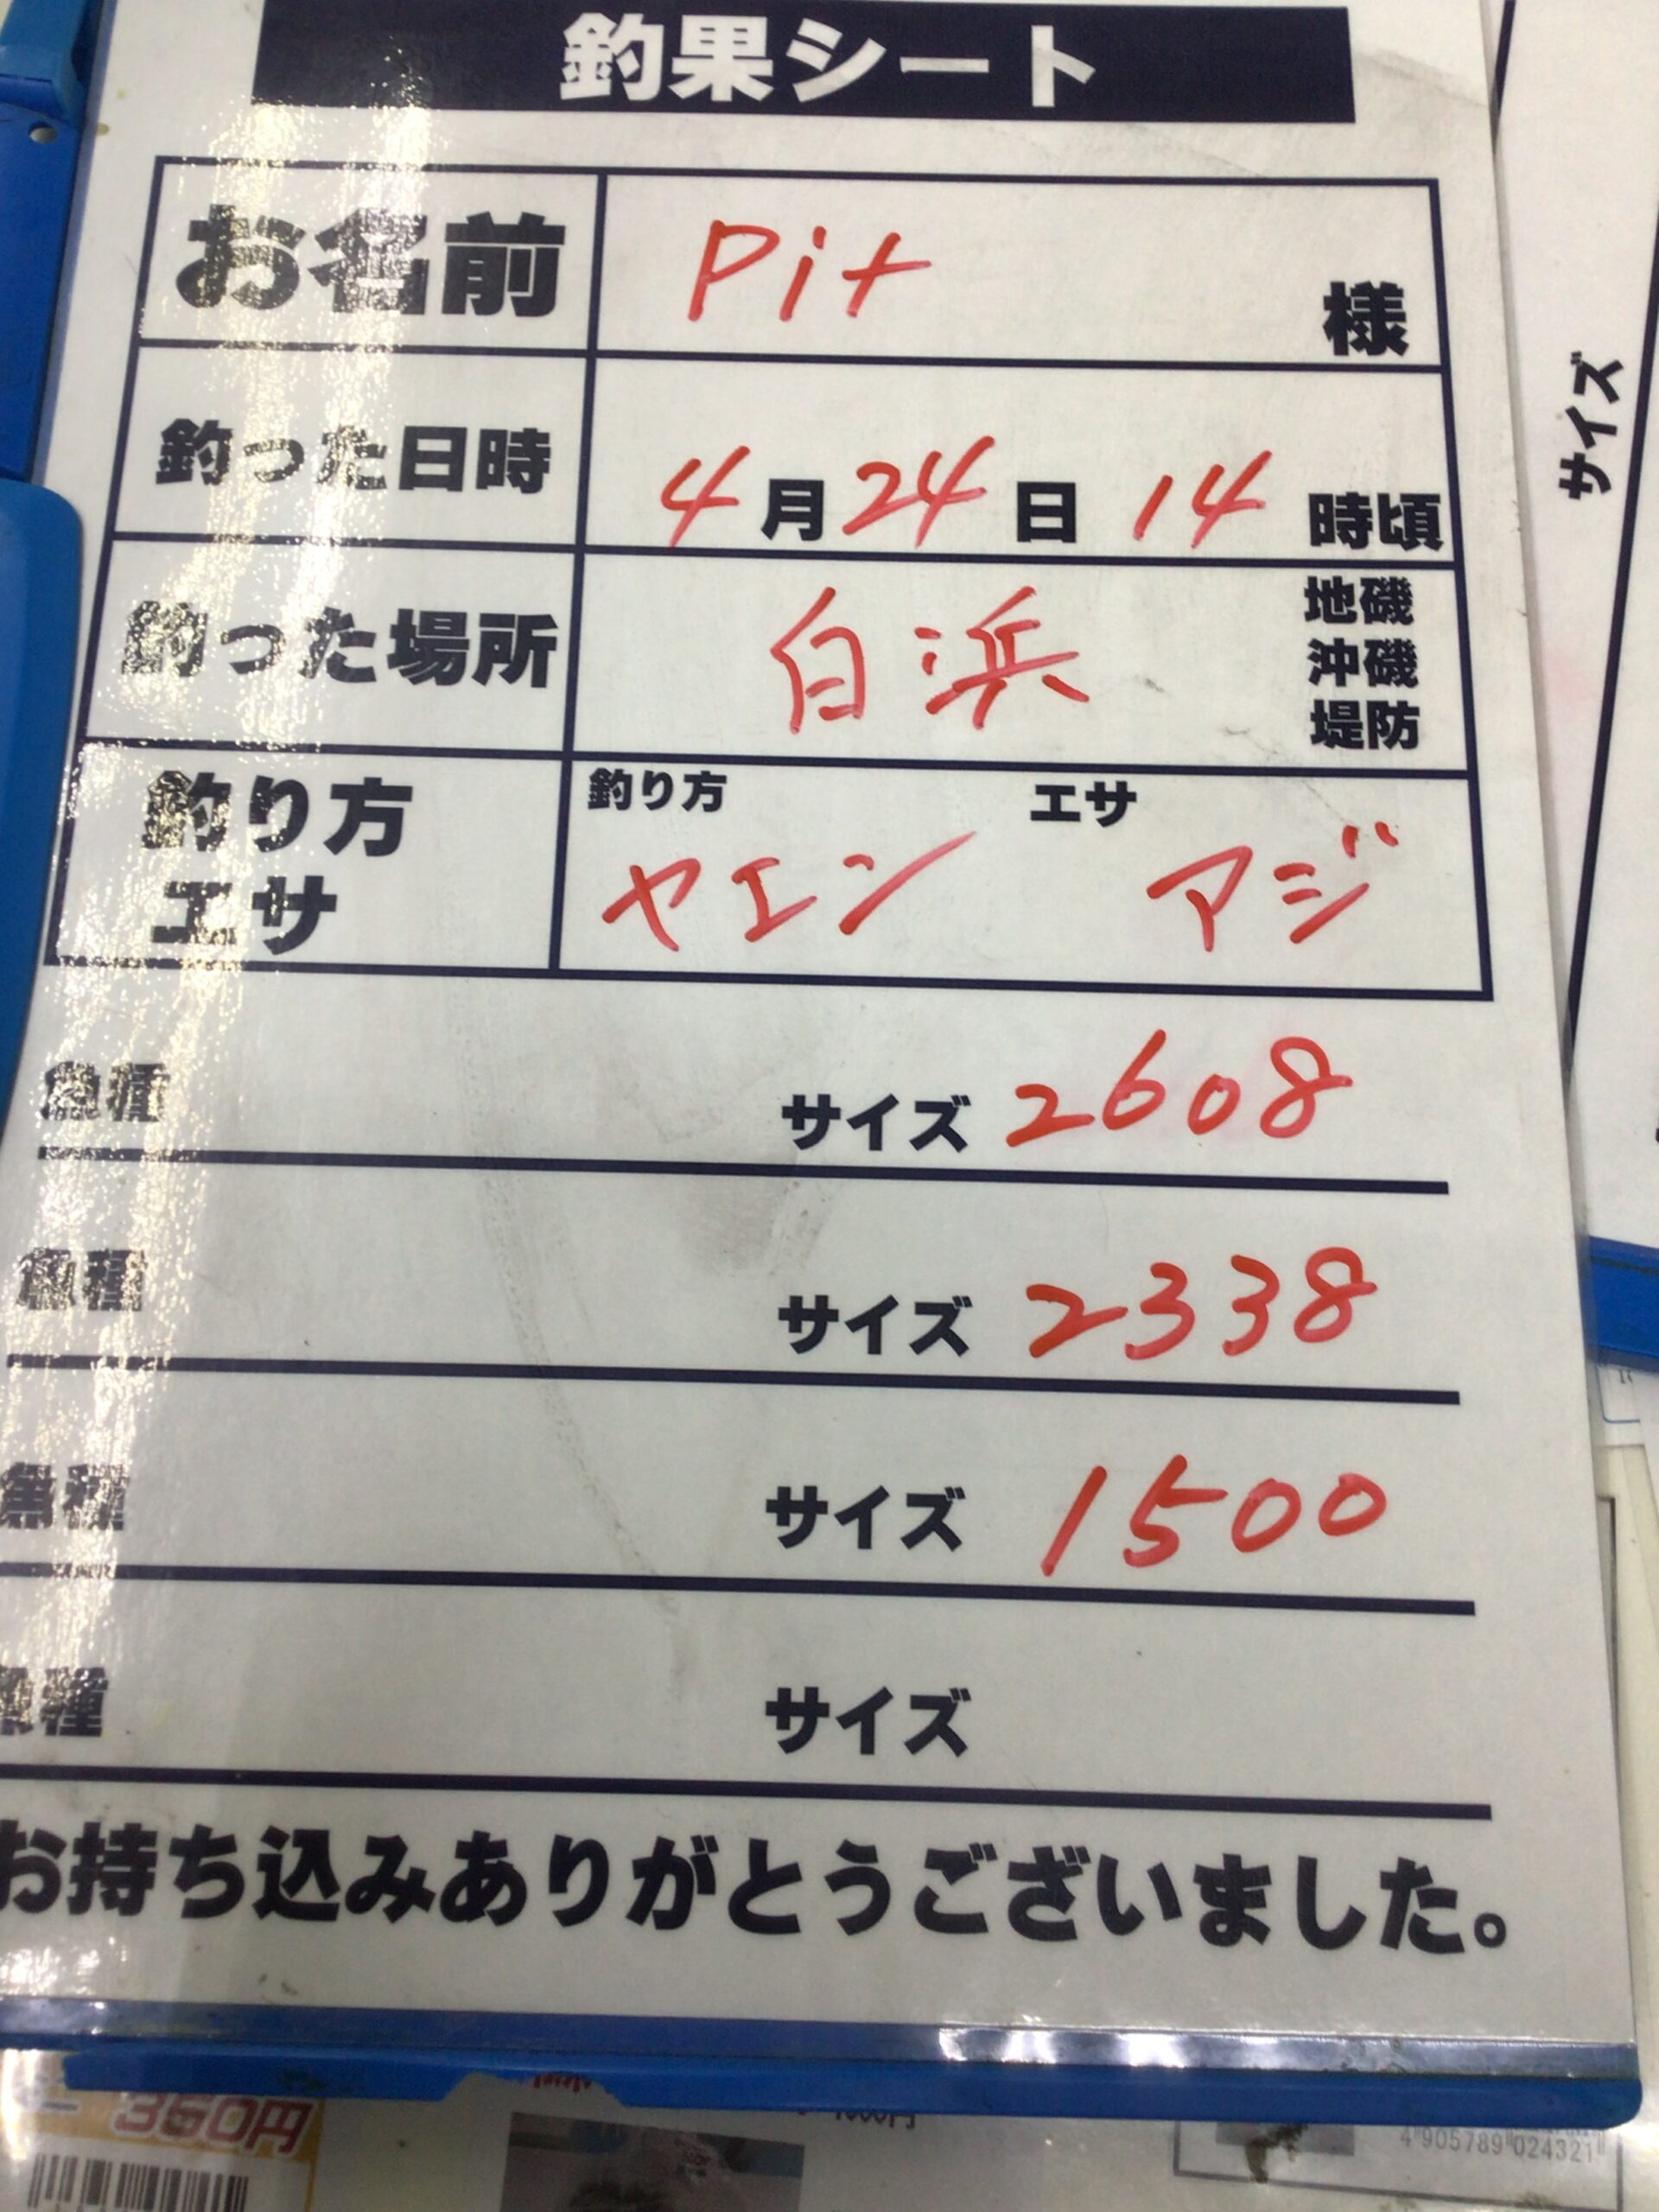 釣果シート
お名前 Pit 様
釣った日時 4月24日 14時頃
釣った場所 白浜 地磯
沖磯
堤防
釣り方 エサ
釣り方 ヤエン エサ アジ
魚種 サイズ 2608
魚種 サイズ 2338
魚種 サイズ 1500
魚種 サイズ
お持ち込みありがとうございました。
サイズ
360円
4 905789 024321